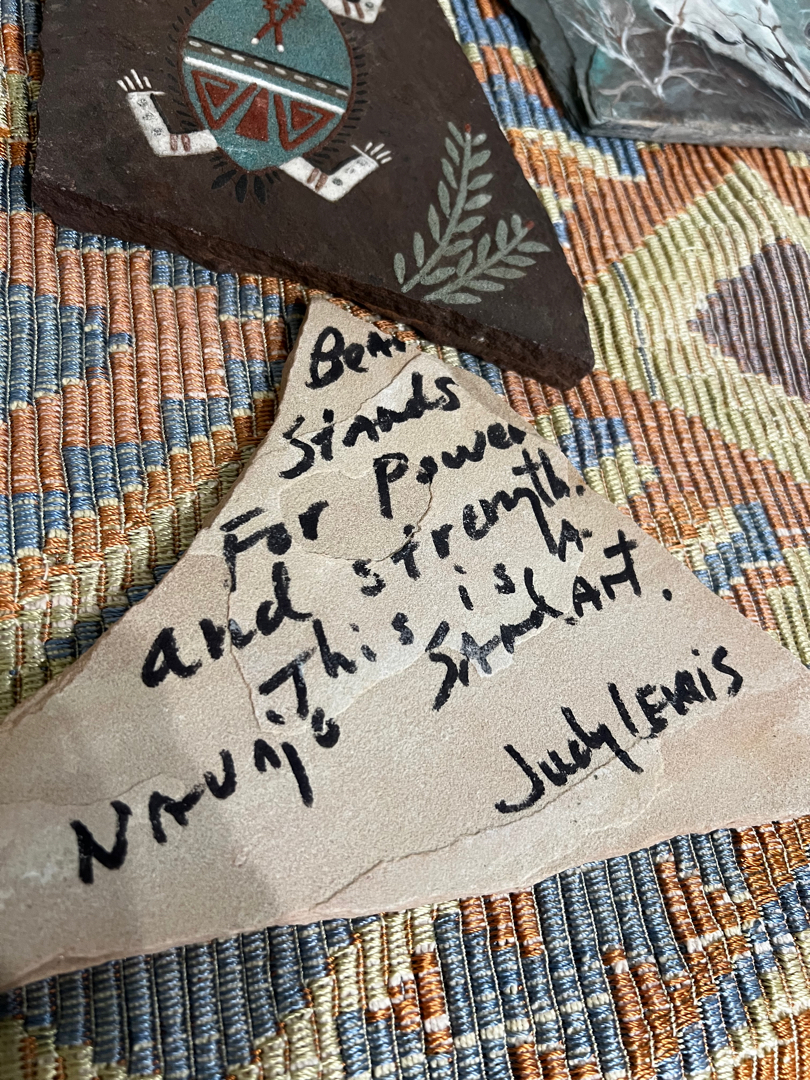 Bear
Stands
For Power
and strength.
This is A
NAVAJO SANd ART.
Judy LEWIS